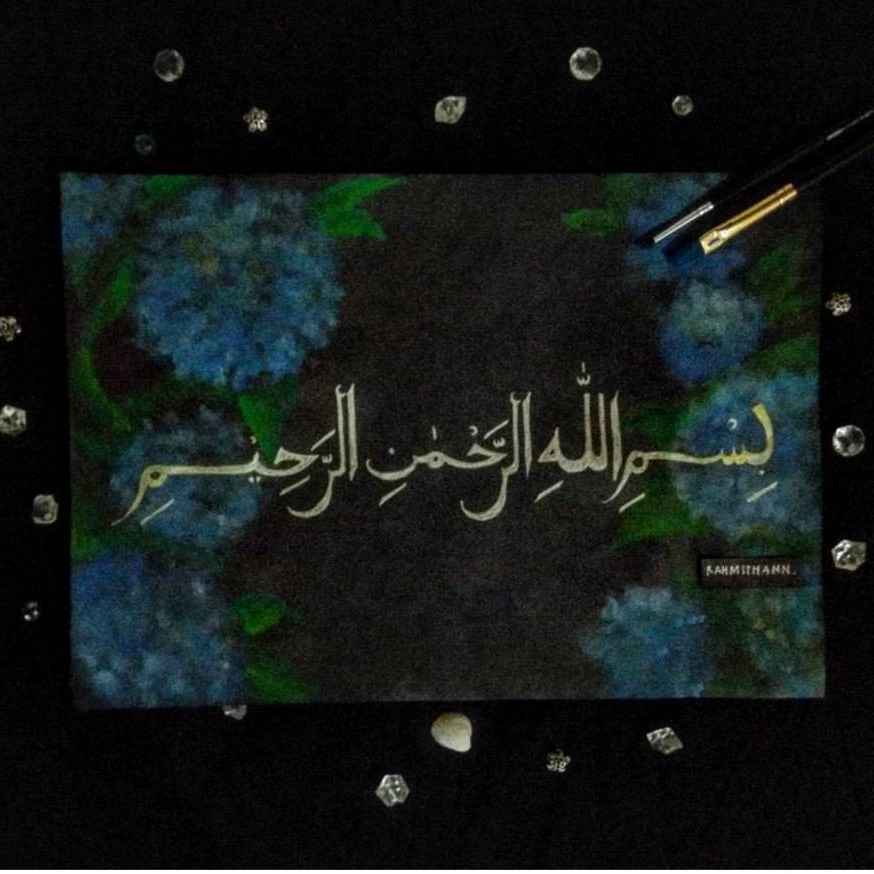 بِسْمِ اللّٰهِ الرَّحْمٰنِ الرَّحِيْمِ
RAHMITHAMN.